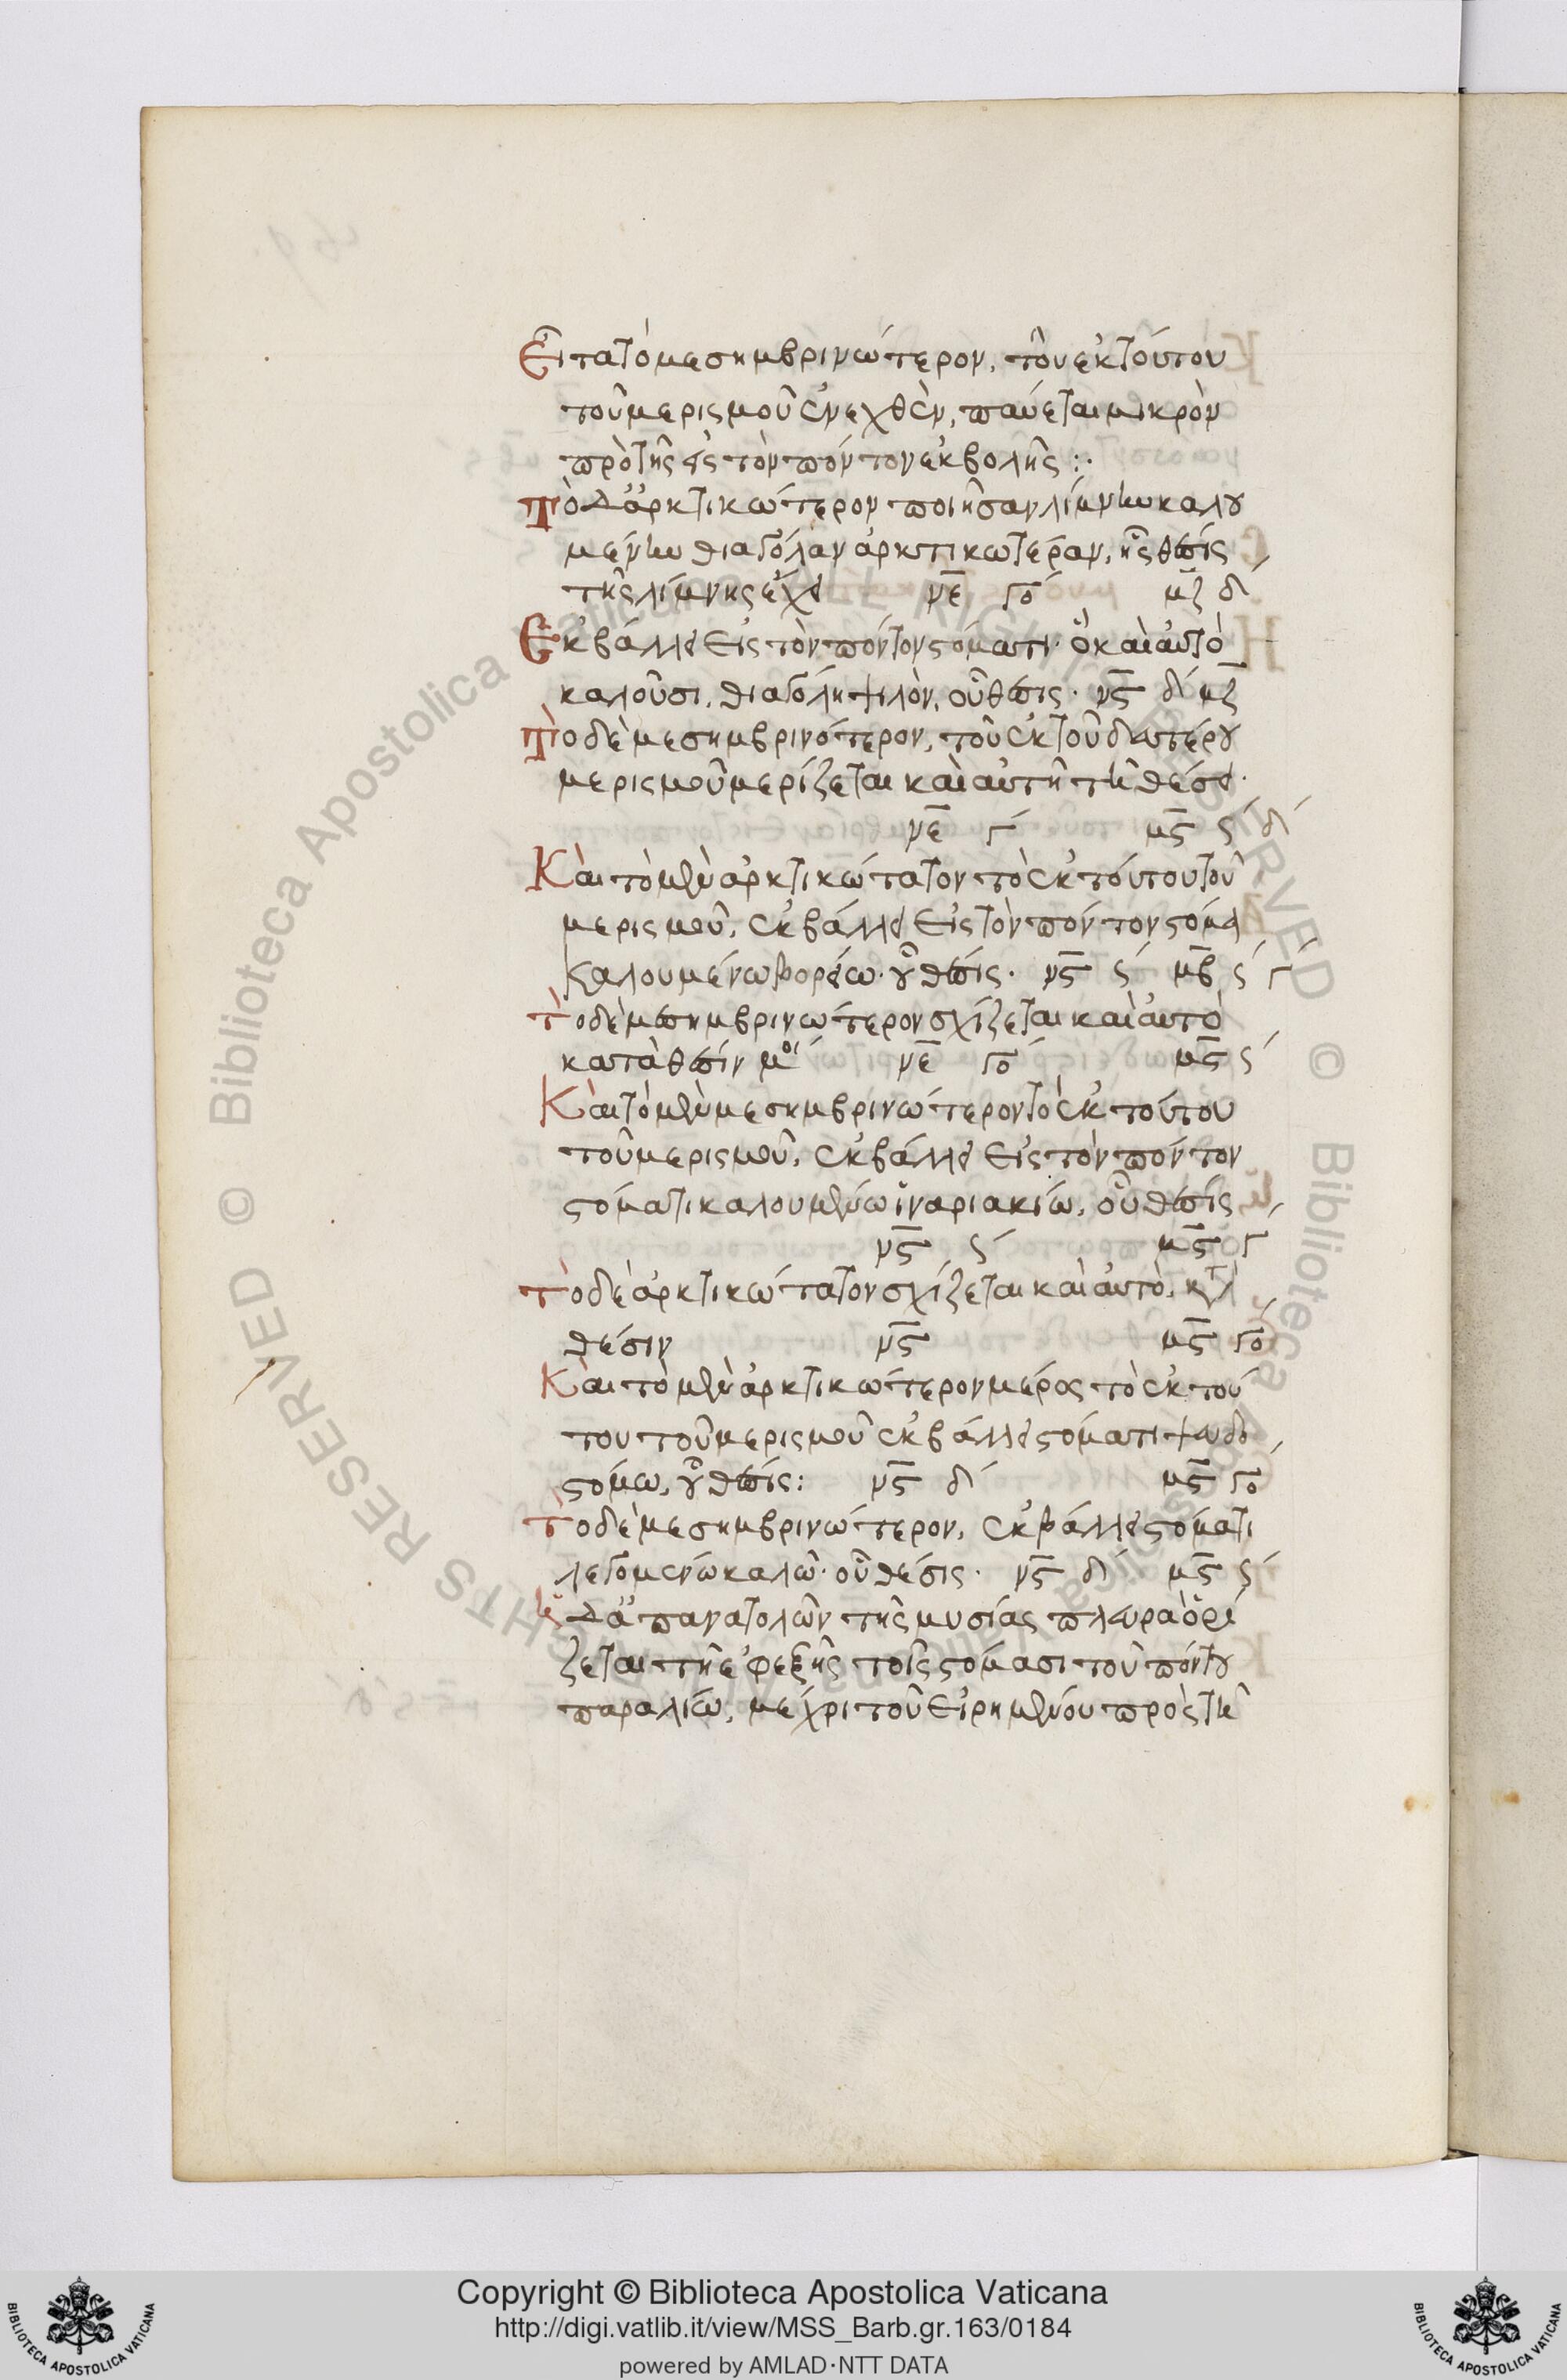 Εἶτα τὸ μεσημβρινώτερον, τοῦ ἐκ τούτου
τοῦ μερισμοῦ ἐνεχθὲν, παύεται μικρὸν
πρὸ τῆς εἰς τὸν πόντον ἐκβολῆς :·
Τὸ δ' ἀρκτικώτερον ποιῆσαν λίμνην καλου
μένην θιαγόλαν ἀρκτικωτέραν, ἧς θέσις
τῆς λίμνης ἔχει νε γο μζ δ
Ἐκβάλλει εἰς τὸν πόντον στόματι· ὃ καὶ αὐτὸ
καλοῦσι, θιαγόλη ψιλὸν, οὗ θέσις· νς δ μζ
Τὸ δὲ μεσημβρινότερον, τοῦ ἐκ τοῦ δευτέρου
μερισμοῦ μερίζεται καὶ αὐτῆ τῆ θέσει·
νε γ μς ς δ
Καὶ τὸ μὲν ἀρκτικώτατον τὸ ἐκ τούτου τοῦ
μερισμοῦ, ἐκβάλλει εἰς τὸν πόντον στόμα
καλουμένω βορείω· οὗ θέσις· νς ς μβ ς γ
Τὸ δὲ μεσημβρινώτερον σχίζεται καὶ αὐτὸ
κατὰ θέσιν μοι νε γο μς ς
Καὶ τὸ μὲν μεσημβρινώτερον τὸ ἐκ τούτου
τοῦ μερισμοῦ, ἐκβάλλει εἰς τὸν πόντον
στόματι καλουμένω ἰναριακίω, οὗ θέσις
νς ς μς γ
Τὸ δὲ ἀρκτικώτατον σχίζεται καὶ αὐτὸ, κατὰ
θέσιν νς μς γο
Καὶ τὸ μὲν ἀρκτικώτερον μέρος τὸ ἐκ τού
του τοῦ μερισμοῦ ἐκβάλλει στόματι ψευδο
στόμω, οὗ θέσις: νς δ μς γο
Τὸ δὲ μεσημβρινώτερον, ἐκβάλλει στόματι
λεγομένω καλῶ· οὗ θέσις· νς δ μς ς
Ἡ δ' ἀπ' ἀνατολῶν τῆς μυσίας πλευρὰ ὁρί
ζεται τῆ ἐφεξῆς τοῖς στόμασι τοῦ πόντου
παραλίω, μέχρι τοῦ εἰρημένου πρὸς τῆ
Copyright © Biblioteca Apostolica Vaticana
http://digi.vatlib.it/view/MSS_Barb.gr.163/0184
powered by AMLAD·NTT DATA
BIBLIOTECA APOSTOLICA VATICANA
BIBLIOTECA APOSTOLICA VATICANA